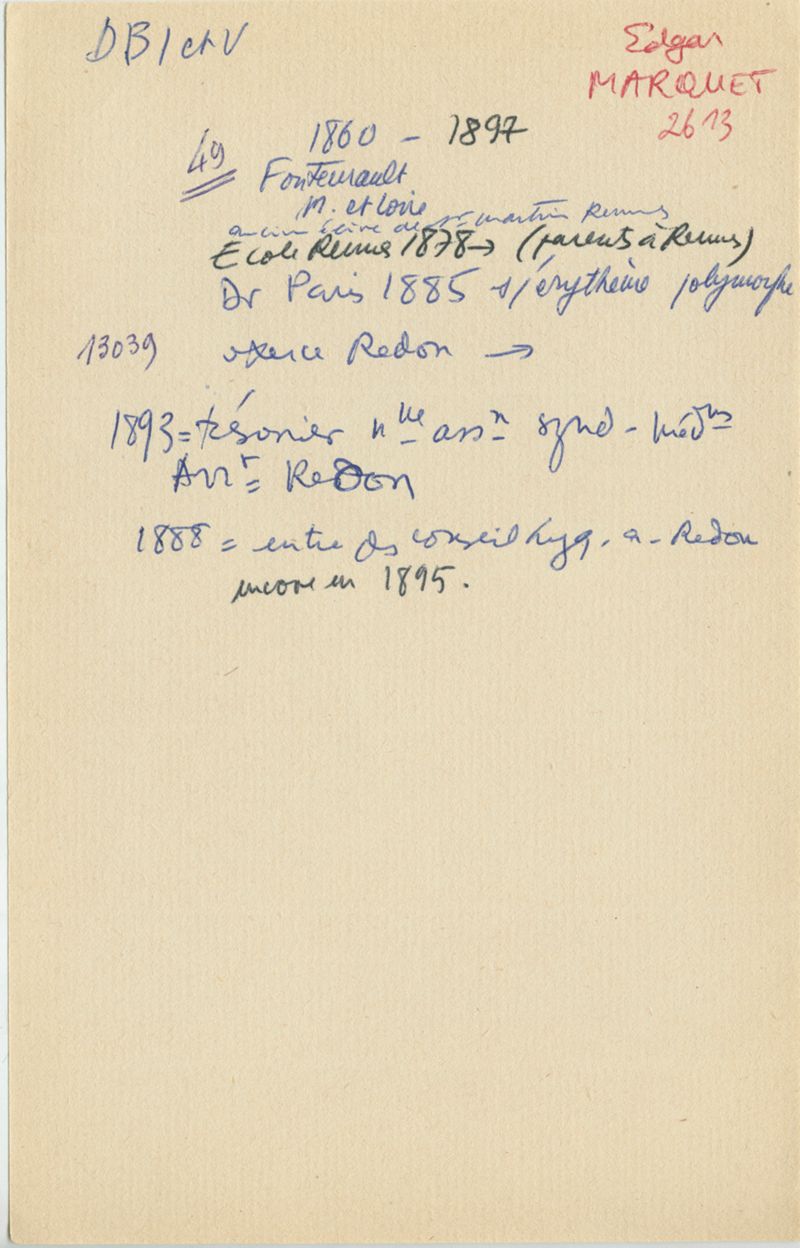 DB I et V
Edgar
MARQUET
2613
1860 - 1897
49
Fontevrault
M. et Loire
ancien élève de St martin Rennes
Ecole Rennes 1878 → (parents à Rennes)
Dr Paris 1885 s/érythème polymorphe
13039 exerce Redon →
1893 = trésorier nlle assn synd - médns
Arrt = Redon
1888 = entre ds conseil hyg. a - Redon
encore en 1895.